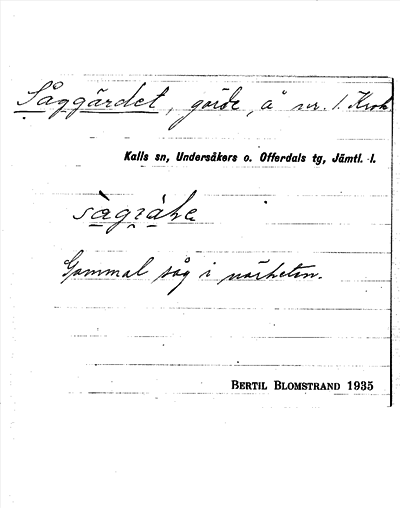 Såggärdet, gärde, å nr. 1. Krok
Kalls sn, Undersåkers o. Offerdals tg, Jämtl. l.
Gammal såg i närheten.
BERTIL BLOMSTRAND 1935